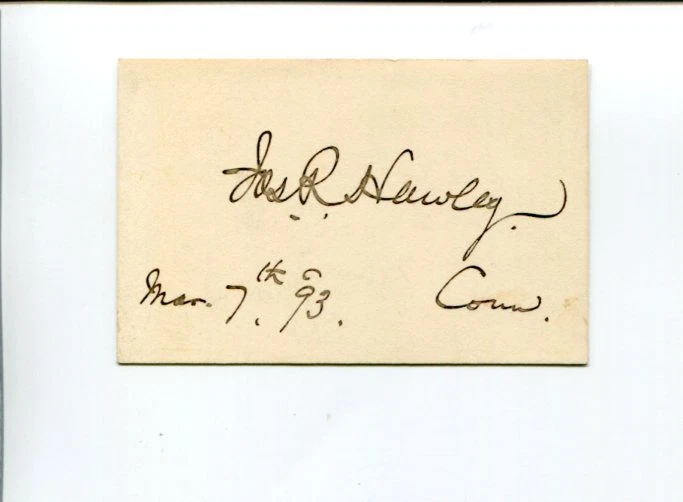 Jos R. Hawley.
Mar. 7th, 93. Conn.